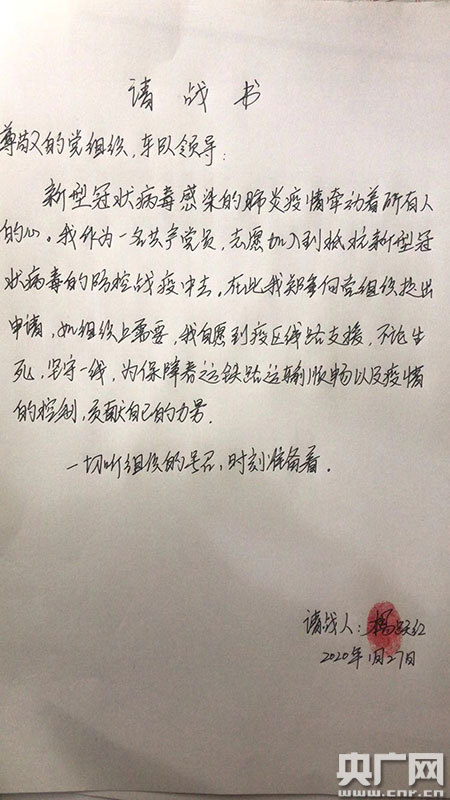 请战书
尊敬的党组织,车队领导:
新型冠状病毒感染的肺炎疫情牵动着所有人
的心。我作为一名共产党员,志愿加入到抵抗新型冠
状病毒的防控战疫中去。在此我郑重向党组织提出
申请,如组织上需要,我自愿到疫区线路支援,不论生
死,坚守一线,为保障春运铁路运输顺畅以及疫情
的控制,贡献自己的力量.
一切听组织的号召,时刻准备着.
请战人:杨跃红
2020年1月27日
央广网
www.cnr.cn